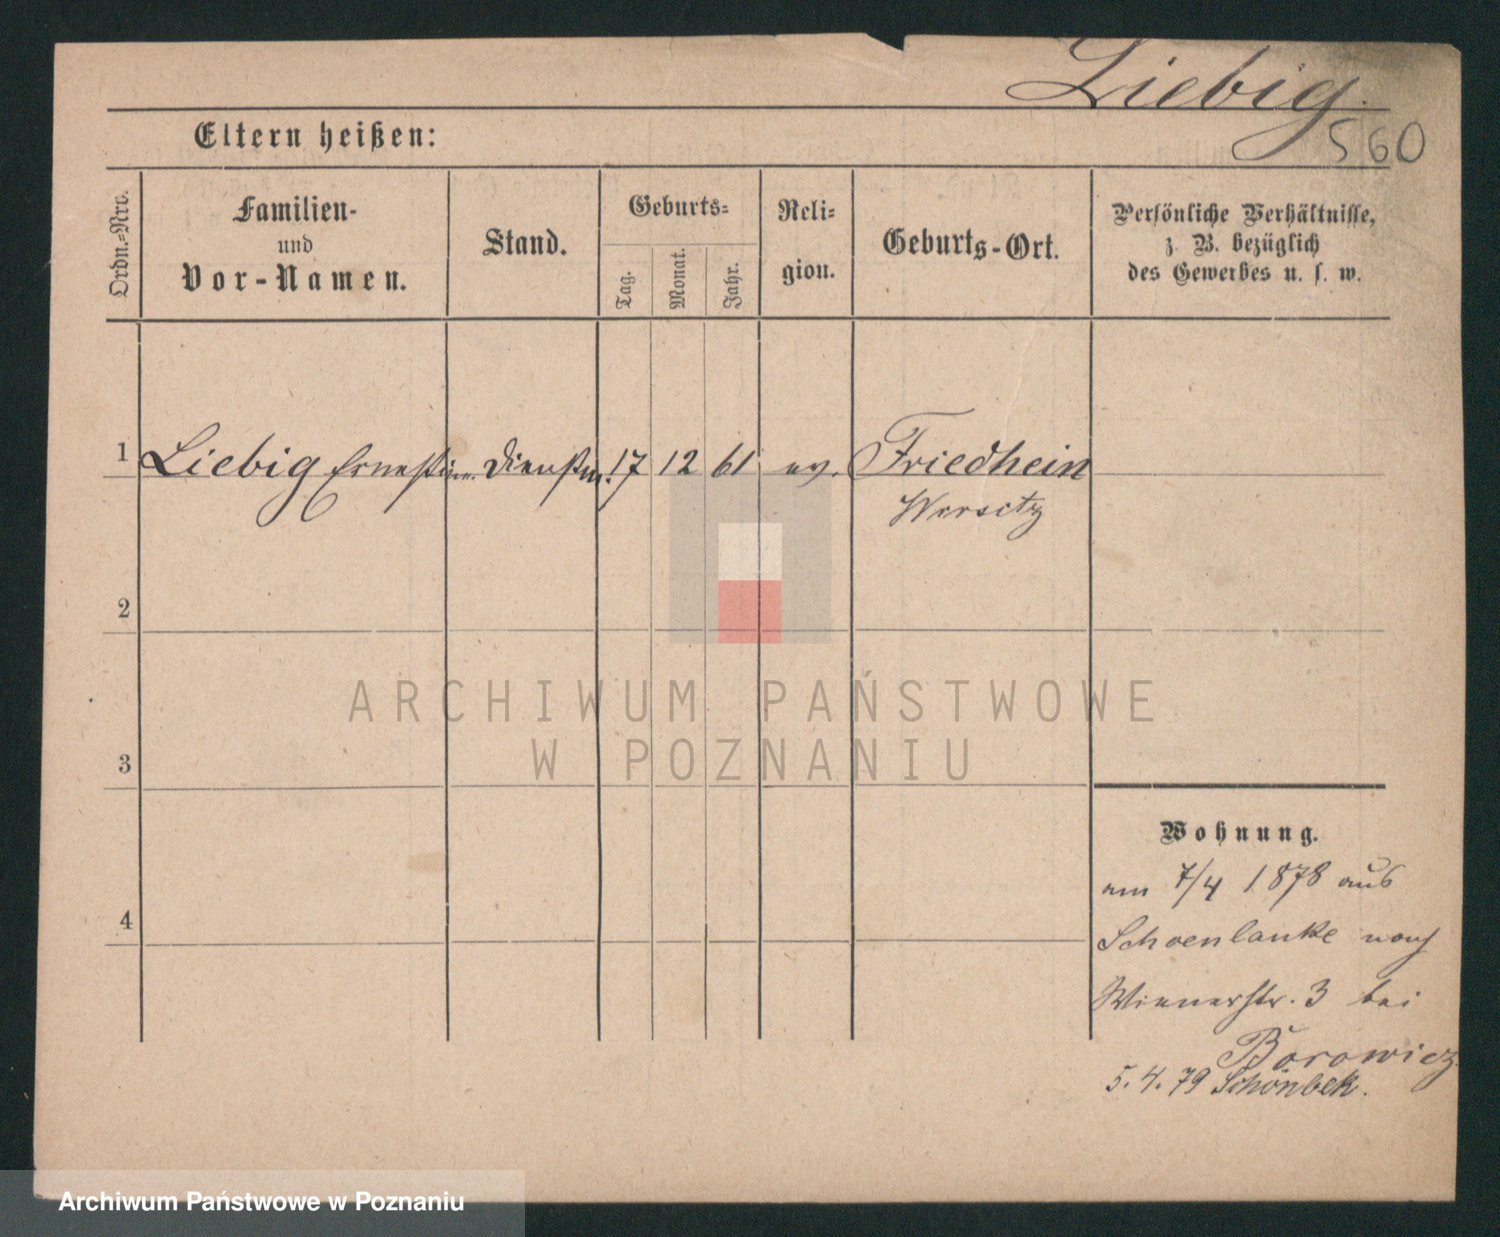 Liebig.
560
Eltern heißen:
Ordn.=Nro.
Familien-
und
Vor-Namen.
Stand.
Geburts=
Tag.
Monat.
Jahr.
Reli=
gion.
Geburts-Ort.
Persönliche Verhältnisse,
z. B. bezüglich
des Gewerbes u. s. w.
1 Liebig Ernestine. Dienstm. 17 12 61 ev. Friedhein
Wirsitz
2
ARCHIWUM PAŃSTWOWE
W POZNANIU
3
Wohnung.
4
am 7/4 1878 aus
Schoenlanke nach
Wienerstr. 3 bei
Borowicz
5. 4. 79 Schönbek.
Archiwum Państwowe w Poznaniu